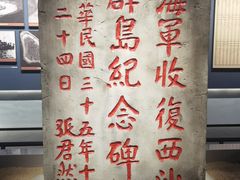 海軍收復西沙
群島紀念碑
華民國三十五年十
二十四日 張君然